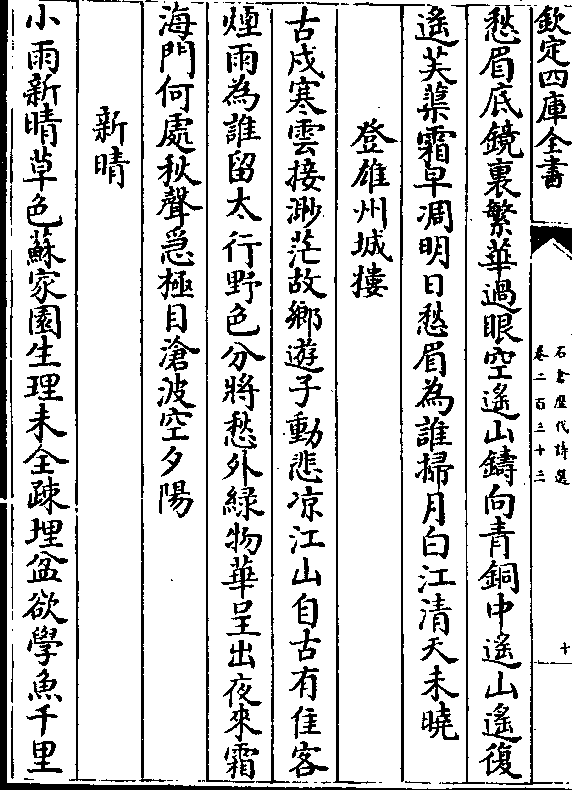 欽定四庫全書
石倉歷代詩選
卷二百三十二
十
愁眉底鏡裏繁華過眼空遙山鑄向青銅中遙山遙復
遙芙蕖霜早凋明日愁眉為誰掃月白江清天未曉
登雄州城樓
古戍寒雲接渺茫故鄉遊子動悲凉江山自古有佳客
煙雨為誰留太行野色分將愁外緑物華呈出夜來霜
海門何處秋聲急極目滄波空夕陽
新晴
小雨新晴草色蘇家園生理未全疎埋盆欲學魚千里